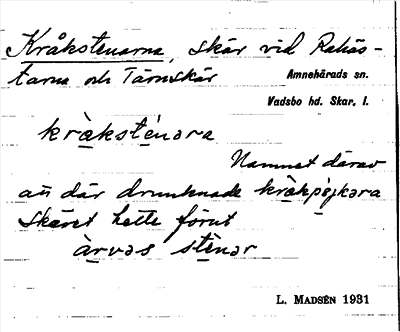 Kråkstenarna, skär vid Rakås-
tarna och Tärnskär
Amnehärads sn.
Vadsbo hd. Skar. l.
kråksténara
Namnet därav
att där drunknade kråkpojkara
Skäret hette förut
àrvas sténar
L. MADSÉN 1931